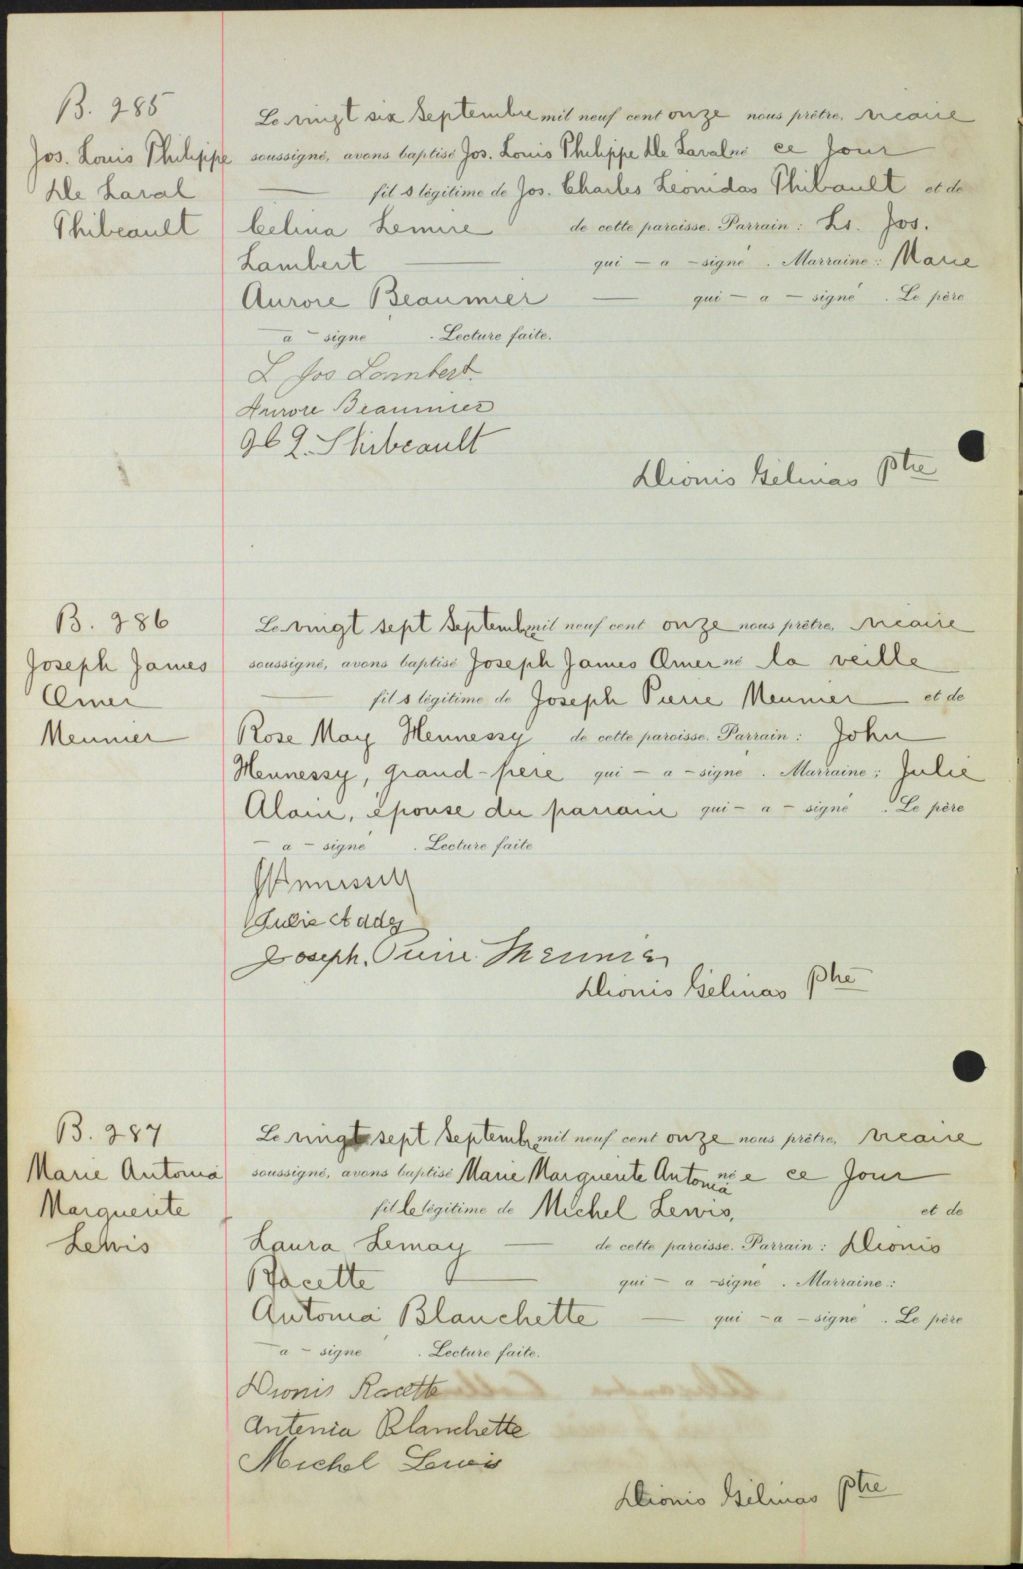 B. 285
Jos. Louis Philippe
De Laval
Thibeault
Le vingt six Septembre mil neuf cent onze nous prêtre, vicaire
soussigné, avons baptisé Jos. Louis Philippe De Laval né ce jour
fils légitime de Jos. Charles Léonidas Thibault et de
Celina Lemire de cette paroisse. Parrain : Ls. Jos.
Lambert — qui — a — signé . Marraine : Marie
Aurore Beaumier — qui — a — signé . Le père
— a — signé . Lecture faite.
L Jos Lambert.
Aurore Beaumier
Thibeault
Dionis Gélinas Ptre
B. 286
Joseph James
Omer
Meunier
Le vingt sept Septembre mil neuf cent onze nous prêtre, vicaire
soussigné, avons baptisé Joseph James Omer né la veille
fils légitime de Joseph Pierre Meunier et de
Rose May Hennessy de cette paroisse. Parrain : John
Hennessy, grand-père qui — a — signé . Marraine : Julie
Alain, épouse du parrain qui — a — signé . Le père
— a — signé . Lecture faite
Julie
Joseph. Pierre Meunier
Dionis Gélinas Ptre
B. 287
Marie Antonia
Marguerite
Lewis
Le vingt sept Septembre mil neuf cent onze nous prêtre, vicaire
soussigné, avons baptisé Marie Marguerite Antonia née ce jour
fille légitime de Michel Lewis, et de
Laura Lemay — de cette paroisse. Parrain : Dionis
Racette — qui — a — signé . Marraine :
Antonia Blanchette — qui — a — signé . Le père
— a — signé . Lecture faite.
Dionis Racette
Antonia Blanchette
Michel Lewis
Dionis Gélinas Ptre